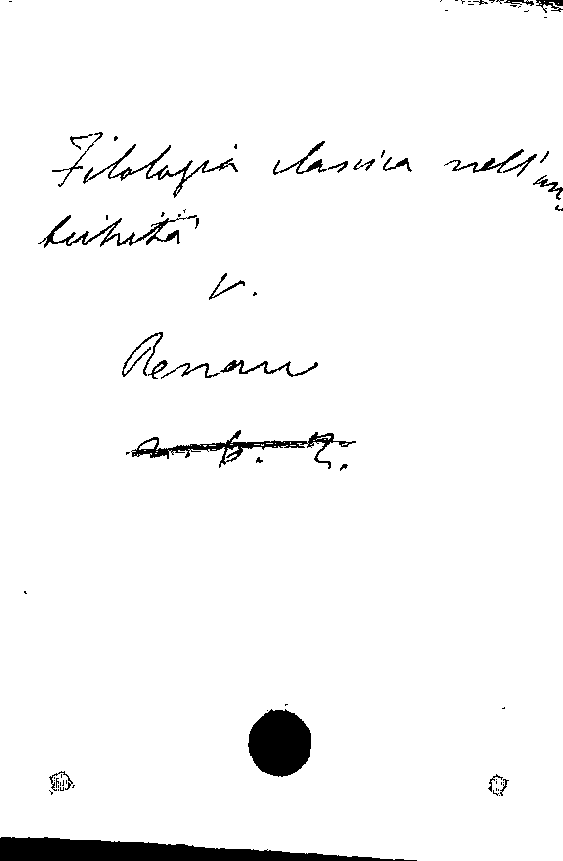 Filologia classica nell'an
tichità
v.
Renan